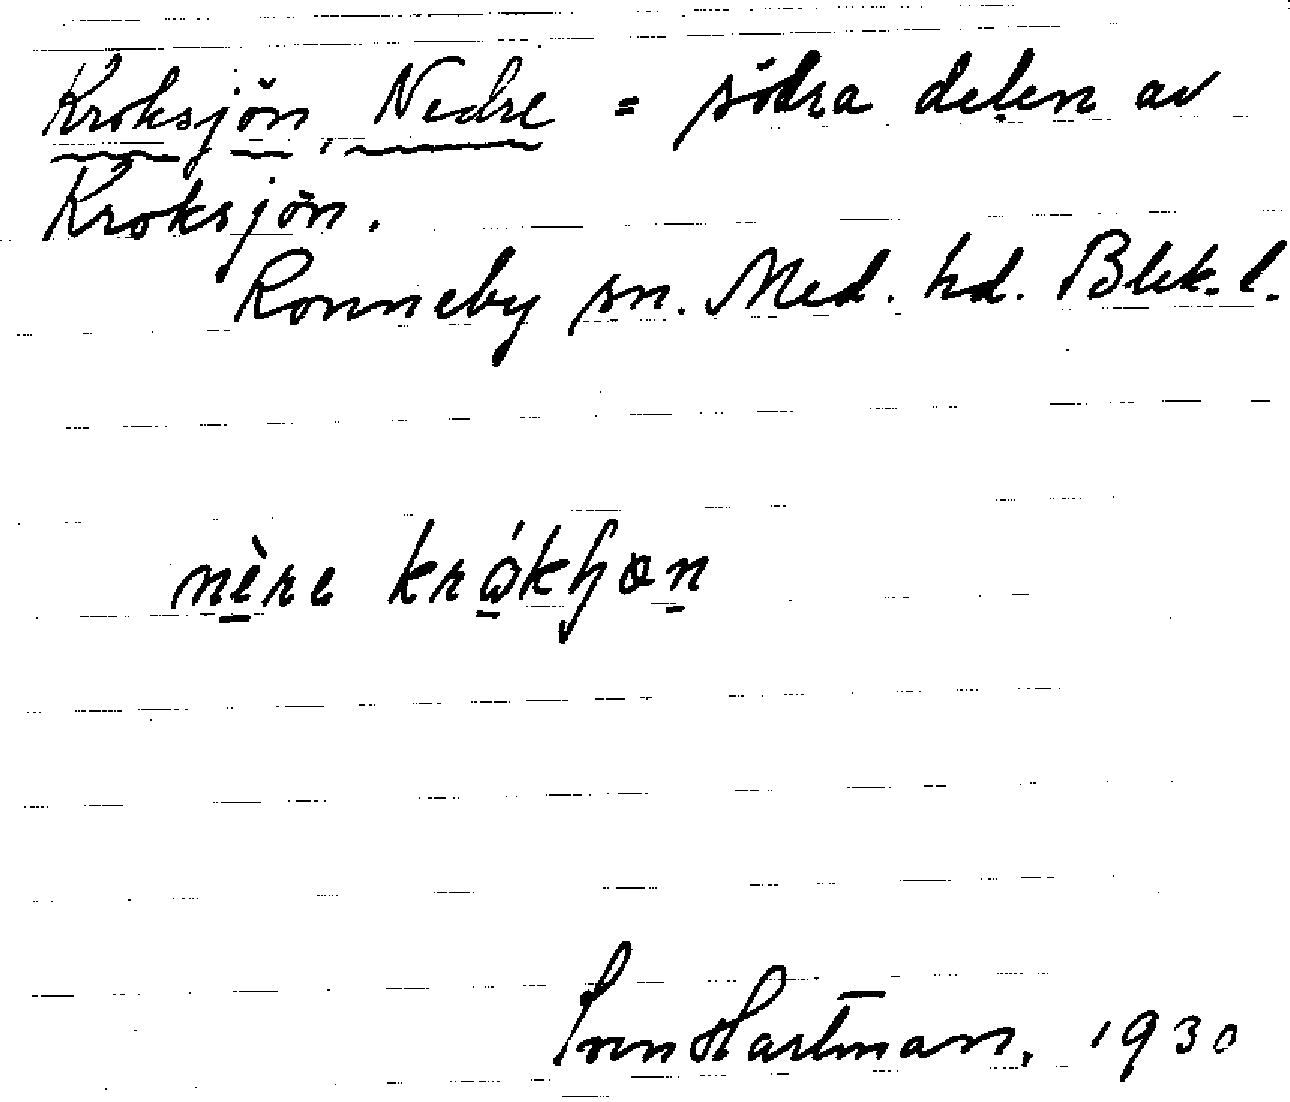 Kroksjön, Nedre = södra delen av
Kroksjön.
Ronneby sn. Med. hd. Blek. l.
nère
Sven Hartman, 1930